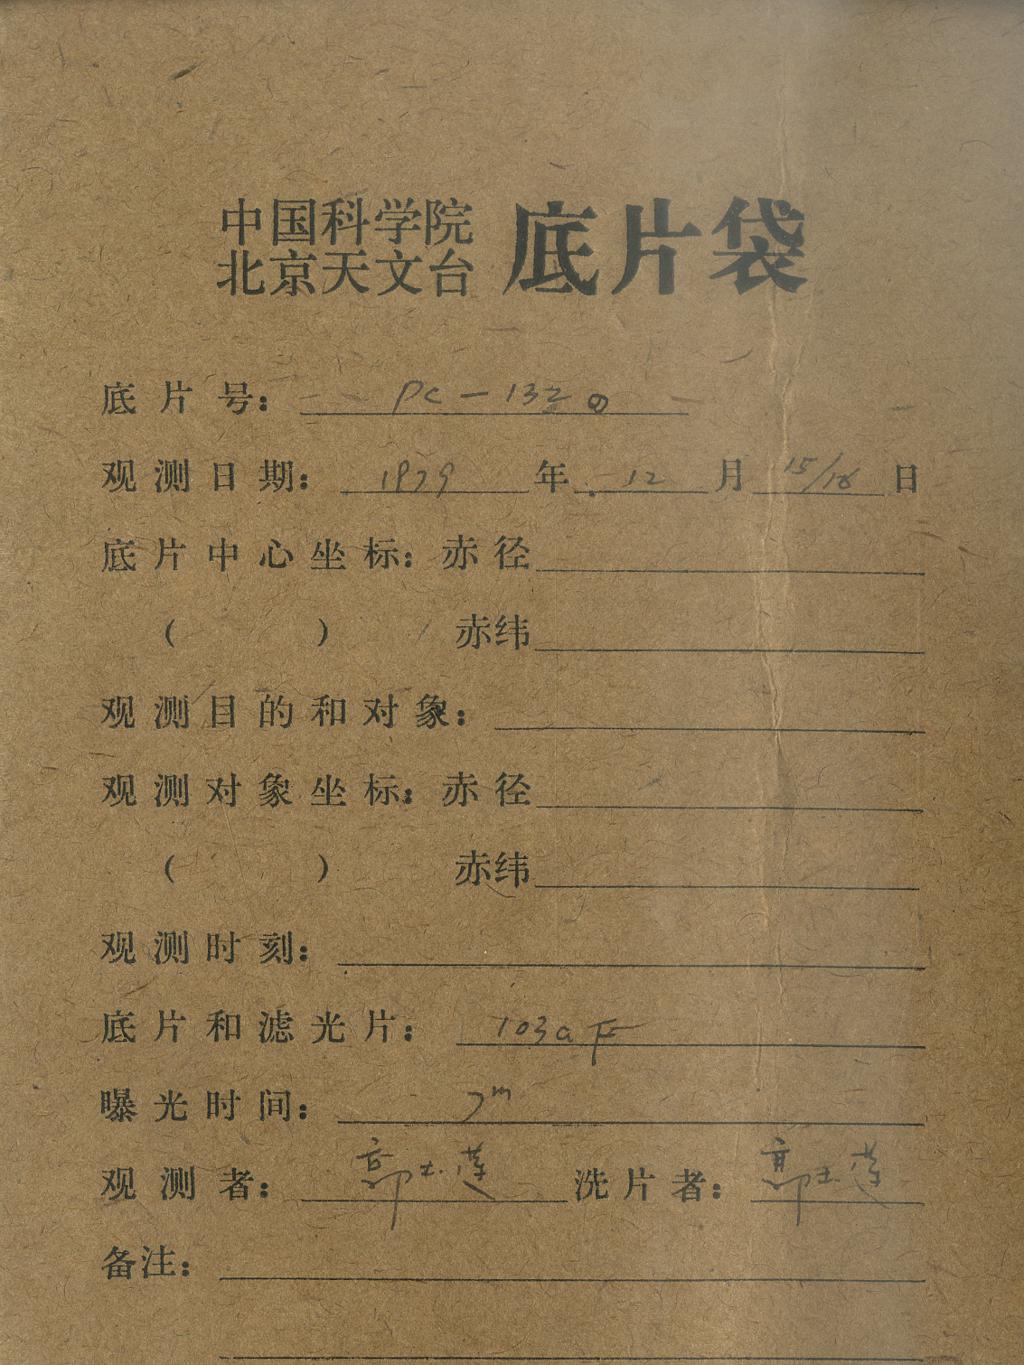 中国科学院
北京天文台 底片袋
底片号: PC-132
观测日期: 1979年 12月 15/16日
底片中心坐标: 赤径
( ) 赤纬
观测目的和对象:
观测对象坐标: 赤径
( ) 赤纬
观测时刻:
底片和滤光片: 103aF
曝光时间: 7m
观测者: 郭玉莲 洗片者: 郭玉莲
备注: